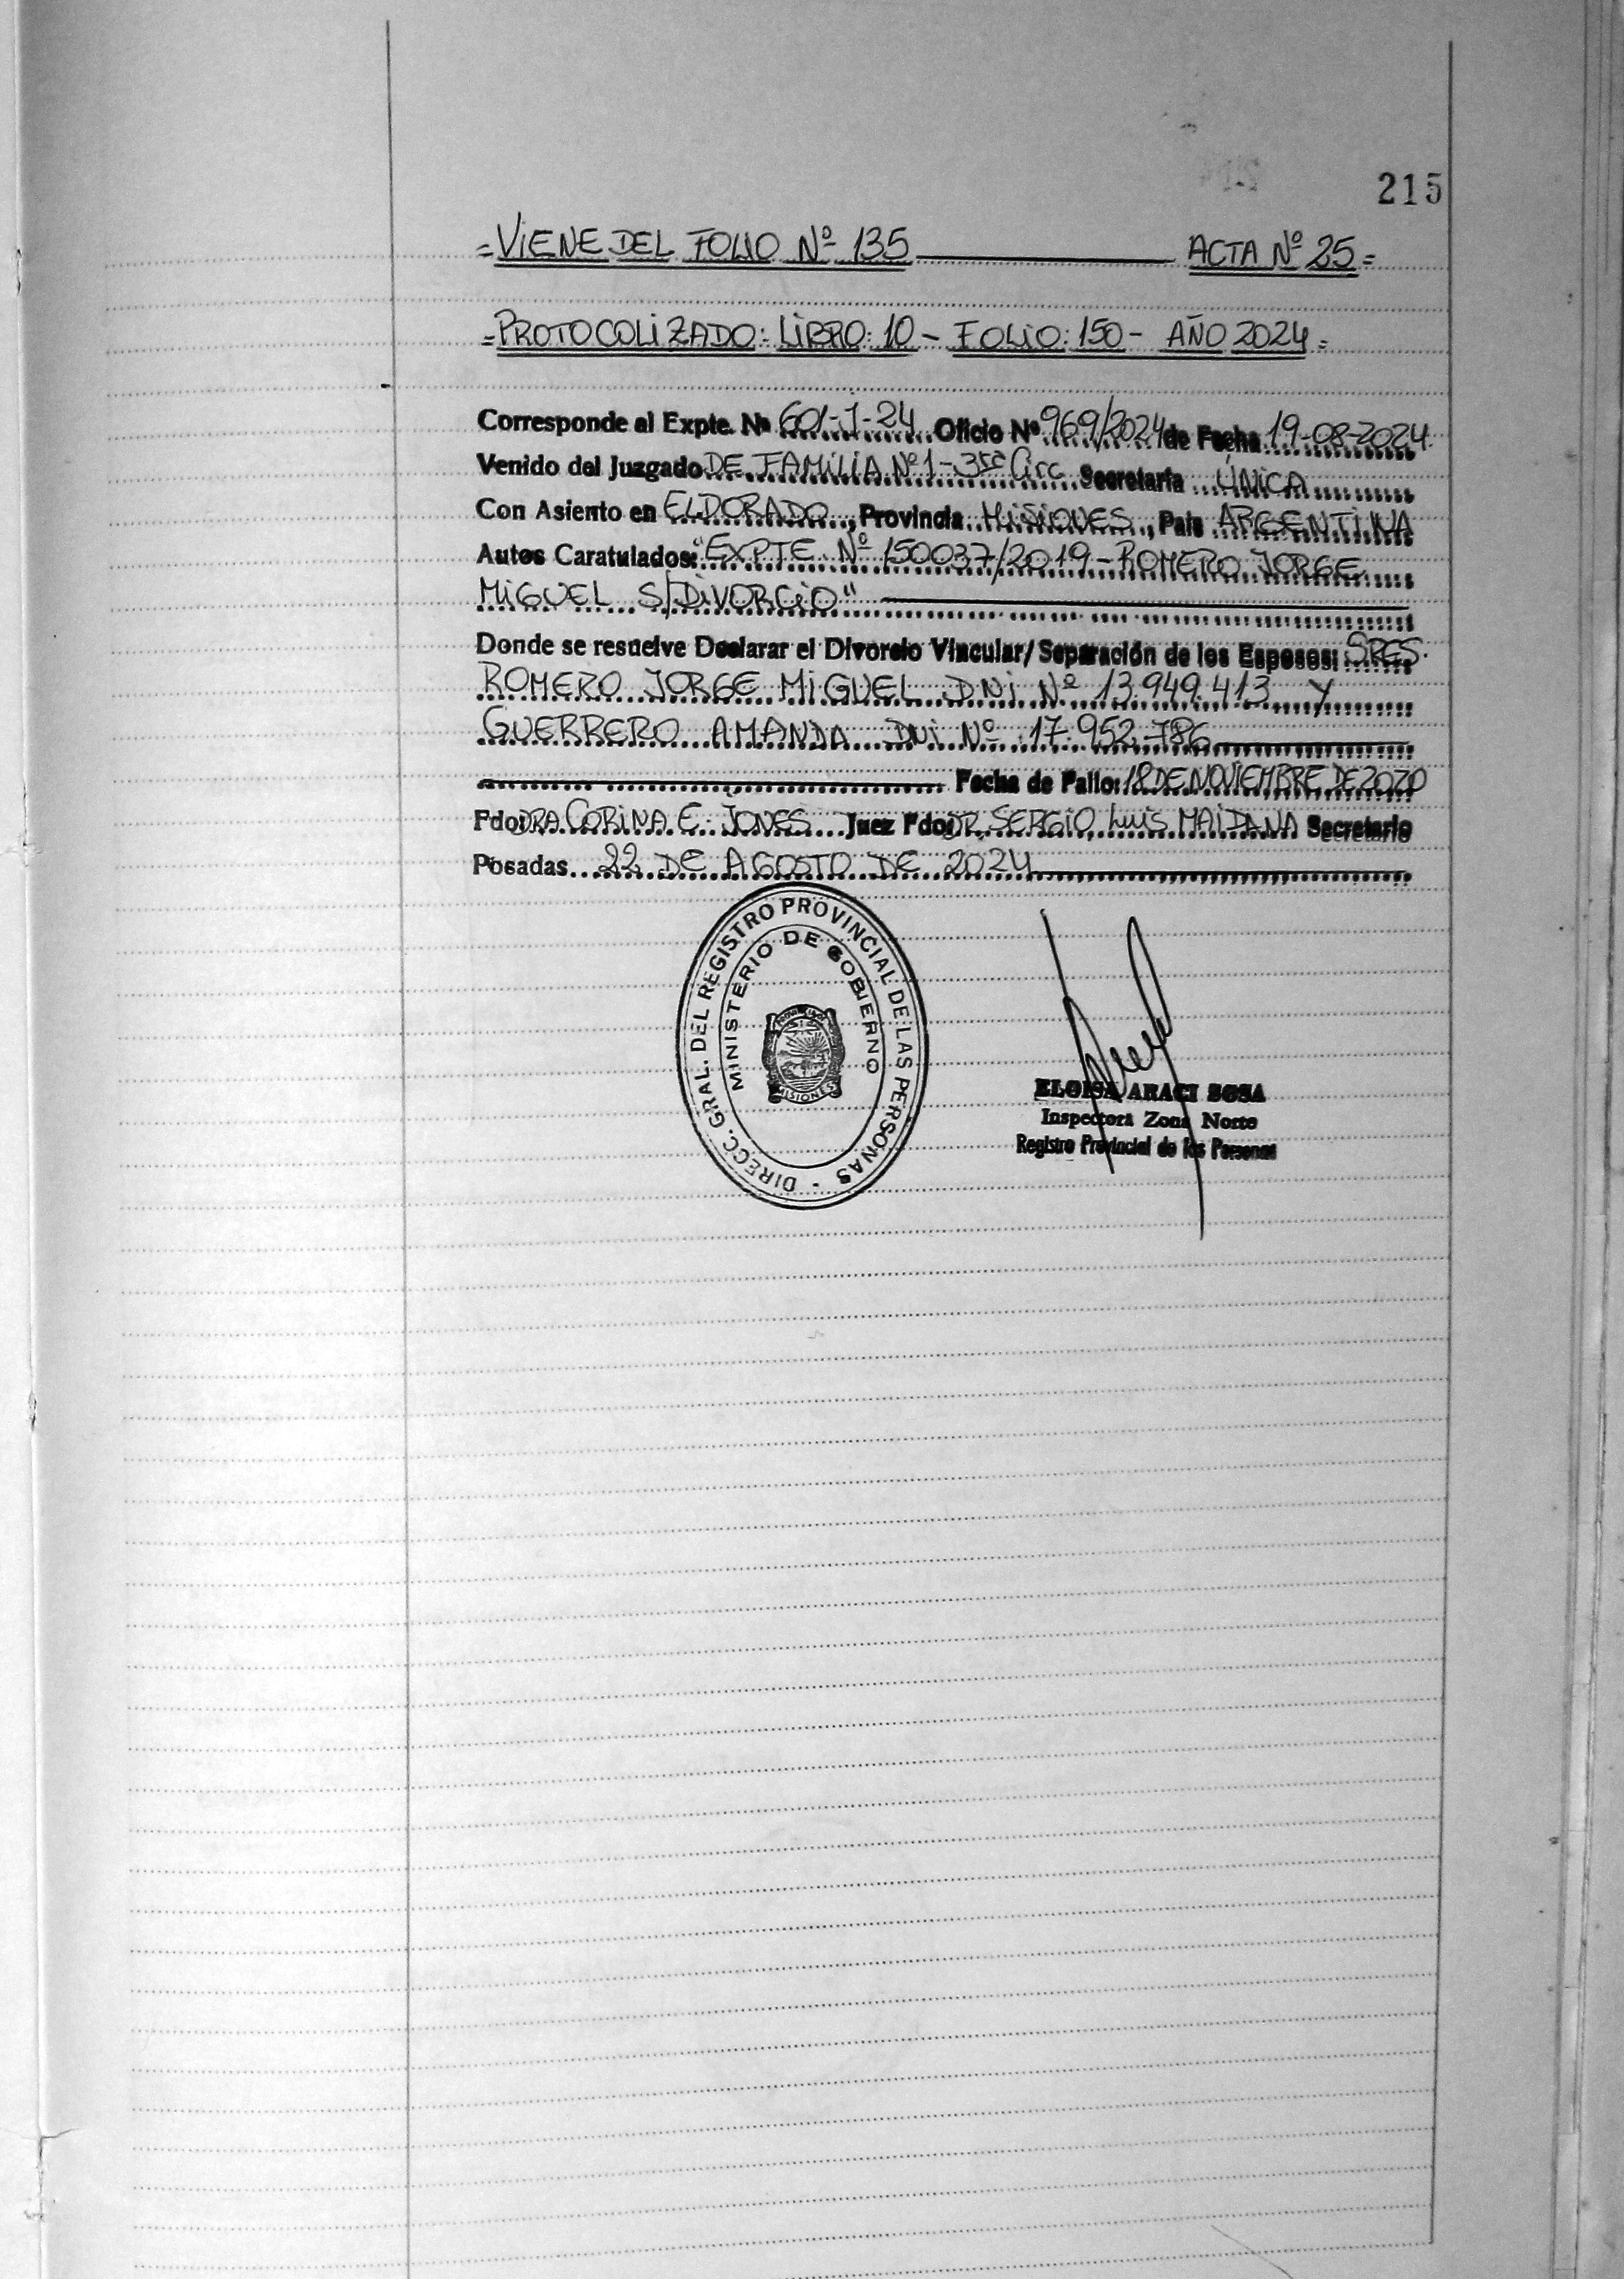 215
=VIENE DEL FOLIO Nº 135 ACTA Nº 25=
=PROTOCOLIZADO: LIBRO: 10 - FOLIO: 150 - AÑO 2024=
Corresponde al Expte. Nº 601-J-24 Oficio Nº 969/2024 de Fecha 19-08-2024
Venido del Juzgado DE FAMILIA Nº 1 - 3ra Circ Secretaría ÚNICA
Con Asiento en ELDORADO, Provincia MISIONES, País ARGENTINA
Autos Caratulados: "EXPTE Nº 150037/2019 - ROMERO JORGE
MIGUEL S/DIVORCIO"
Donde se resuelve Declarar el Divorcio Vincular/Separación de los Esposos: SRES.
ROMERO JORGE MIGUEL DNI Nº 13.949.413 Y
GUERRERO AMANDA DNI Nº 17.952.786
Fecha de Fallo: 18 DE NOVIEMBRE DE 2020
Fdo: DRA CORINA E. JONES Juez Fdo: DR. SERGIO LUIS MAIDANA Secretario
Posadas 22 DE AGOSTO DE 2024
DIRECC. GRAL. DEL REGISTRO PROVINCIAL DE LAS PERSONAS -
MINISTERIO DE GOBIERNO
MISIONES
ELOISA ARACI SOSA
Inspectora Zona Norte
Registro Provincial de las Personas